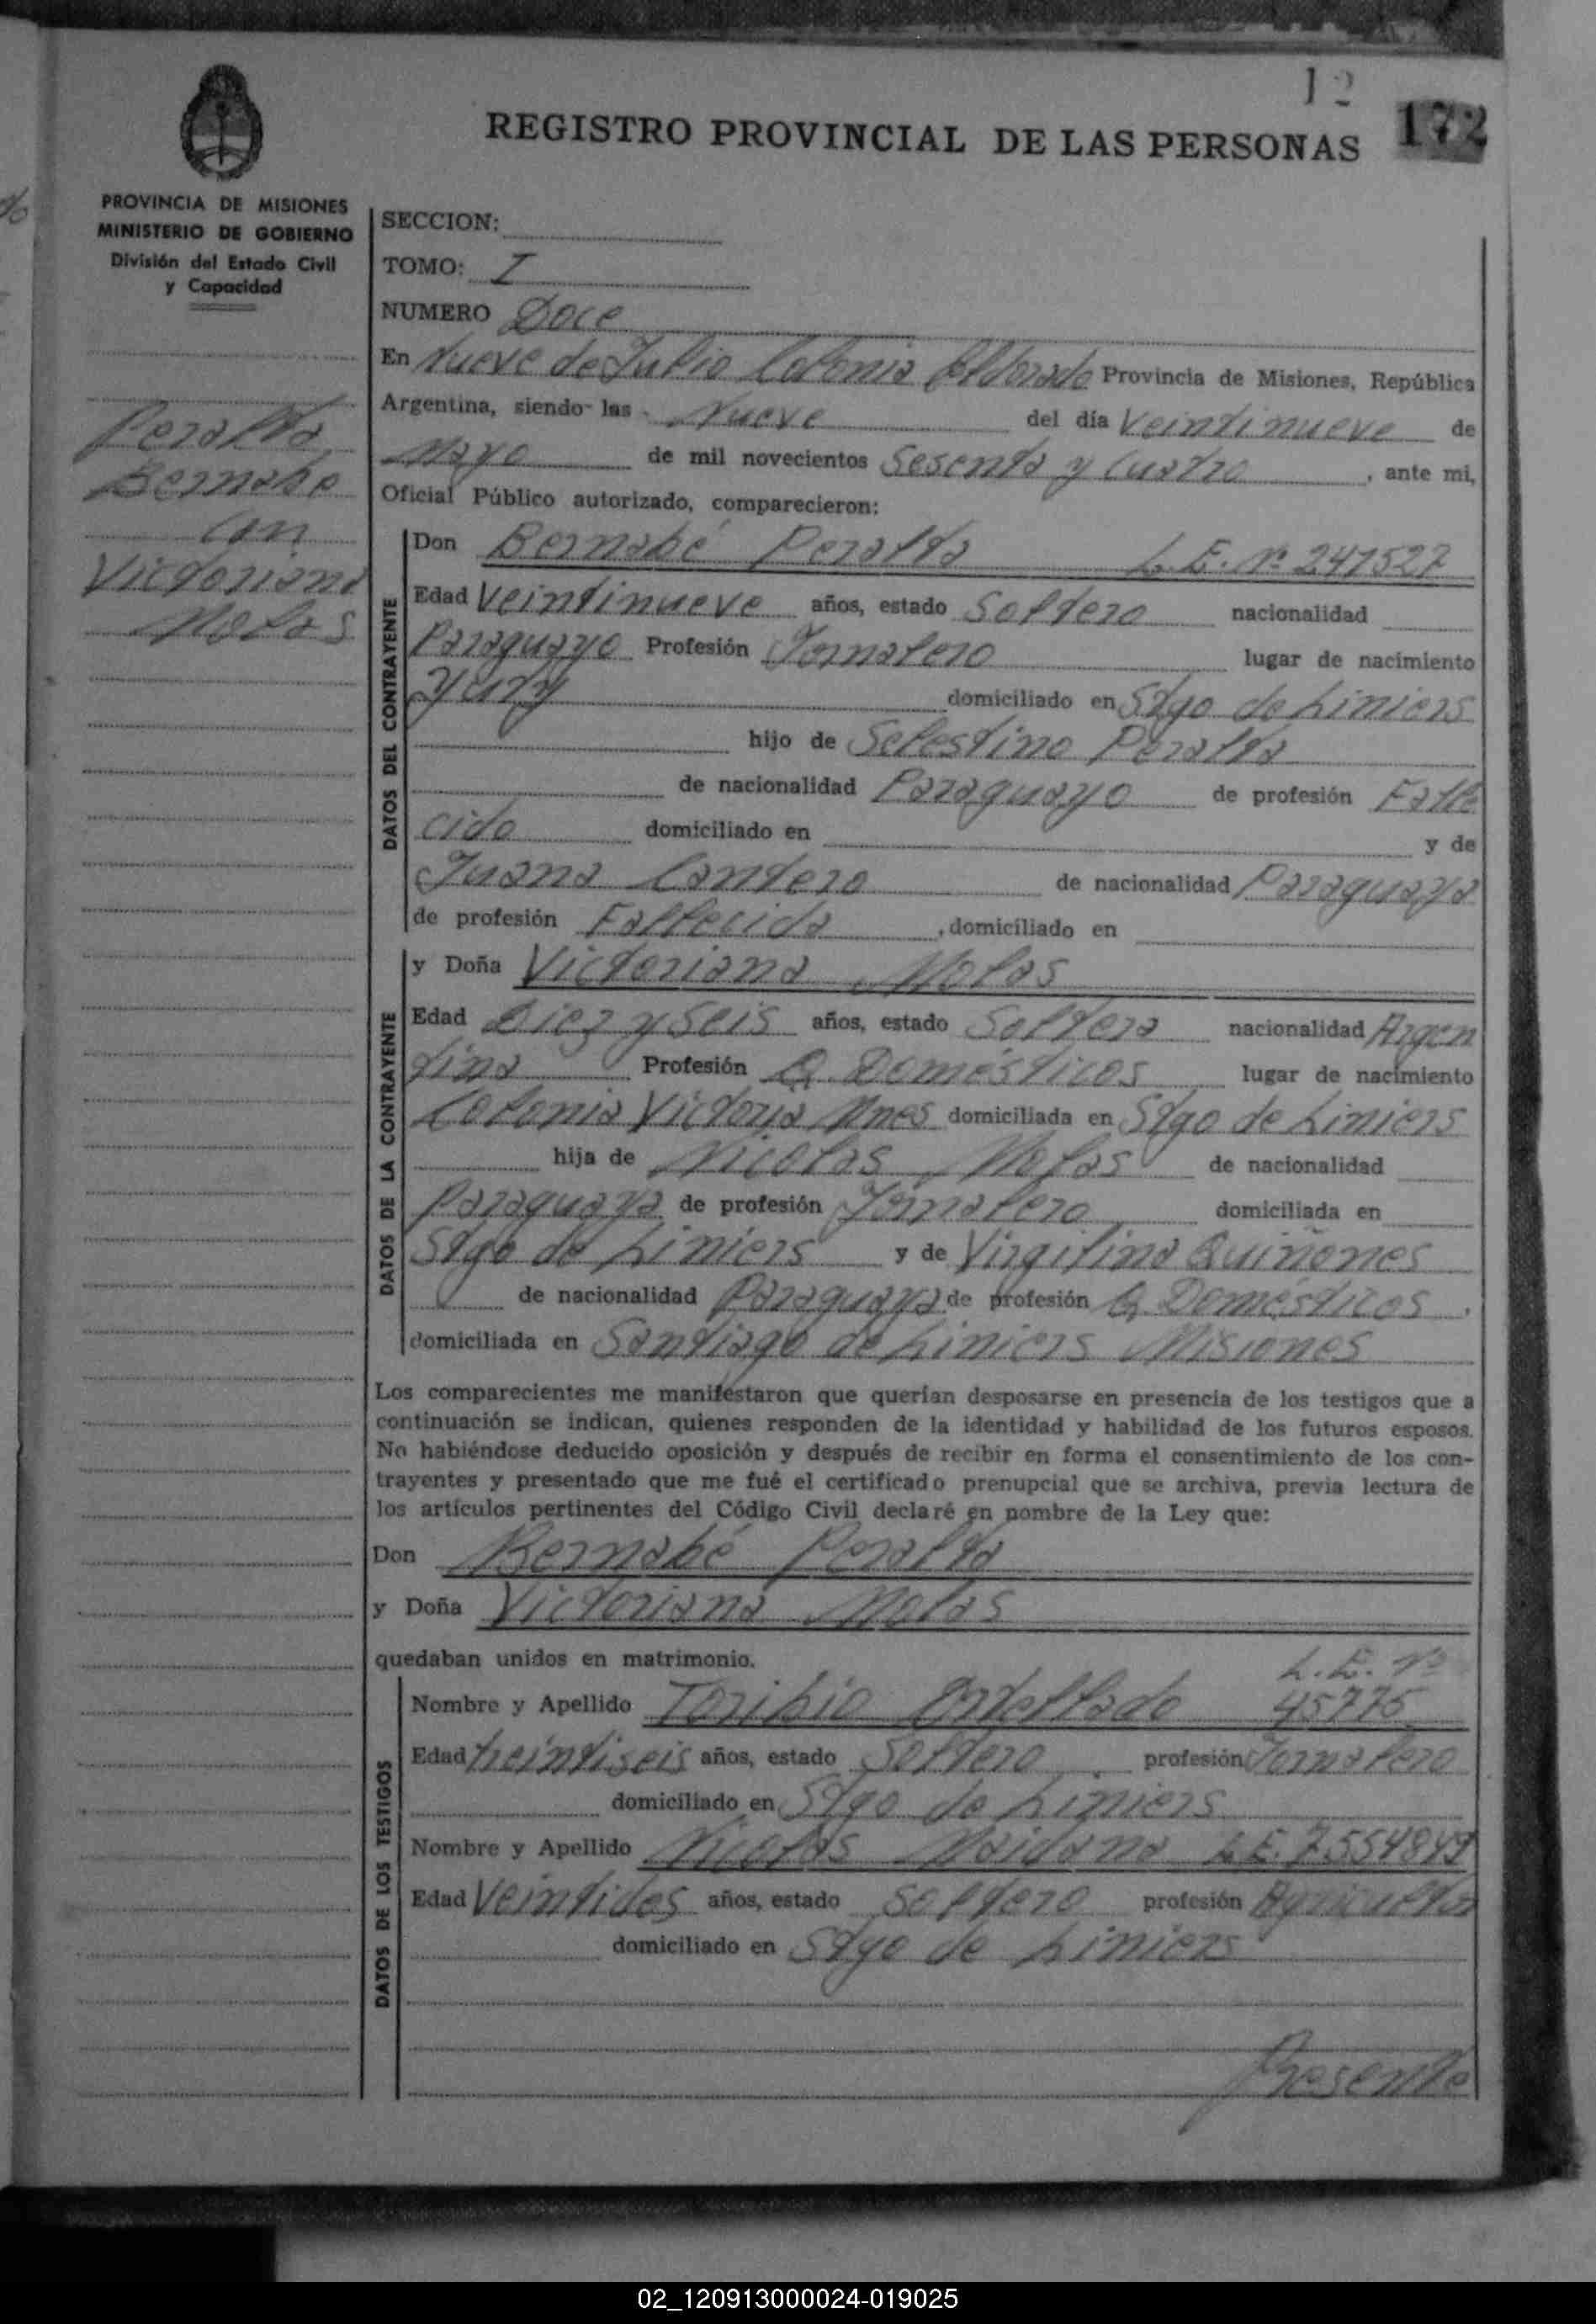 12
172
REGISTRO PROVINCIAL DE LAS PERSONAS
PROVINCIA DE MISIONES
MINISTERIO DE GOBIERNO
División del Estado Civil
y Capacidad
Peralta
Bernabe
con
Victoriana
Molas
SECCION:
TOMO: I
NUMERO Doce
En Nueve de Julio Colonia Eldorado Provincia de Misiones, República
Argentina, siendo las Nueve del día Veintinueve de
Mayo de mil novecientos Sesenta y Cuatro, ante mi,
Oficial Público autorizado, comparecieron:
DATOS DEL CONTRAYENTE
Don Bernabé Peralta L.E. Nº 241527
Edad Veintinueve años, estado Soltero nacionalidad
Paraguayo Profesión Jornalero lugar de nacimiento
Yuty domiciliado en Stgo de Liniers
hijo de Selestino Peralta
de nacionalidad Paraguayo de profesión Falle
cido domiciliado en y de
Juana Cantero de nacionalidad Paraguaya
de profesión Fallecida, domiciliado en
DATOS DE LA CONTRAYENTE
y Doña Victoriana Molas
Edad Diez y Seis años, estado Soltera nacionalidad Argen
tina Profesión Q. Domésticos lugar de nacimiento
Colonia Victoria Mnes domiciliada en Stgo de Liniers
hija de Nicolas Molas de nacionalidad
Paraguaya de profesión Jornalero domiciliada en
Stgo de Liniers y de Virgilina Quiñones
de nacionalidad Paraguaya de profesión Q. Domésticos.
domiciliada en Santiago de Liniers Misiones
Los comparecientes me manifestaron que querían desposarse en presencia de los testigos que a
continuación se indican, quienes responden de la identidad y habilidad de los futuros esposos.
No habiéndose deducido oposición y después de recibir en forma el consentimiento de los con-
trayentes y presentado que me fué el certificado prenupcial que se archiva, previa lectura de
los artículos pertinentes del Código Civil declaré en nombre de la Ley que:
Don Bernabé Peralta
y Doña Victoriana Molas
quedaban unidos en matrimonio.
DATOS DE LOS TESTIGOS
L.E. Nº
Nombre y Apellido Toribio Ortellado 45775
Edad treintiseis años, estado Soltero profesión Jornalero
domiciliado en Stgo de Liniers
Nombre y Apellido Nicolas Maidana L.E. 7554849
Edad Veintidos años, estado Soltero profesión Agricultor
domiciliado en Stgo de Liniers
Presente
02_120913000024-019025